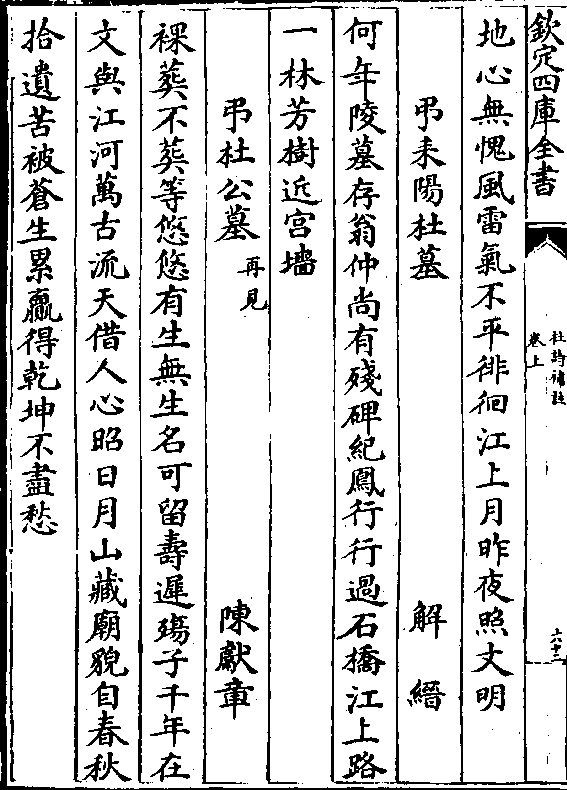 欽定四庫全書
杜詩補註
卷上
六十二
地心無愧風雷氣不平徘徊江上月昨夜照文明
弔耒陽杜墓
解縉
何年陵墓存翁仲尚有殘碑紀鳳行行過石橋江上路
一林芳樹近宫墻
弔杜公墓再見
陳獻章
裸葬不葬等悠悠有生無生名可留壽遲殤子千年在
文與江河萬古流天借人心昭日月山藏廟貌自春秋
拾遺苦被蒼生累贏得乾坤不盡愁